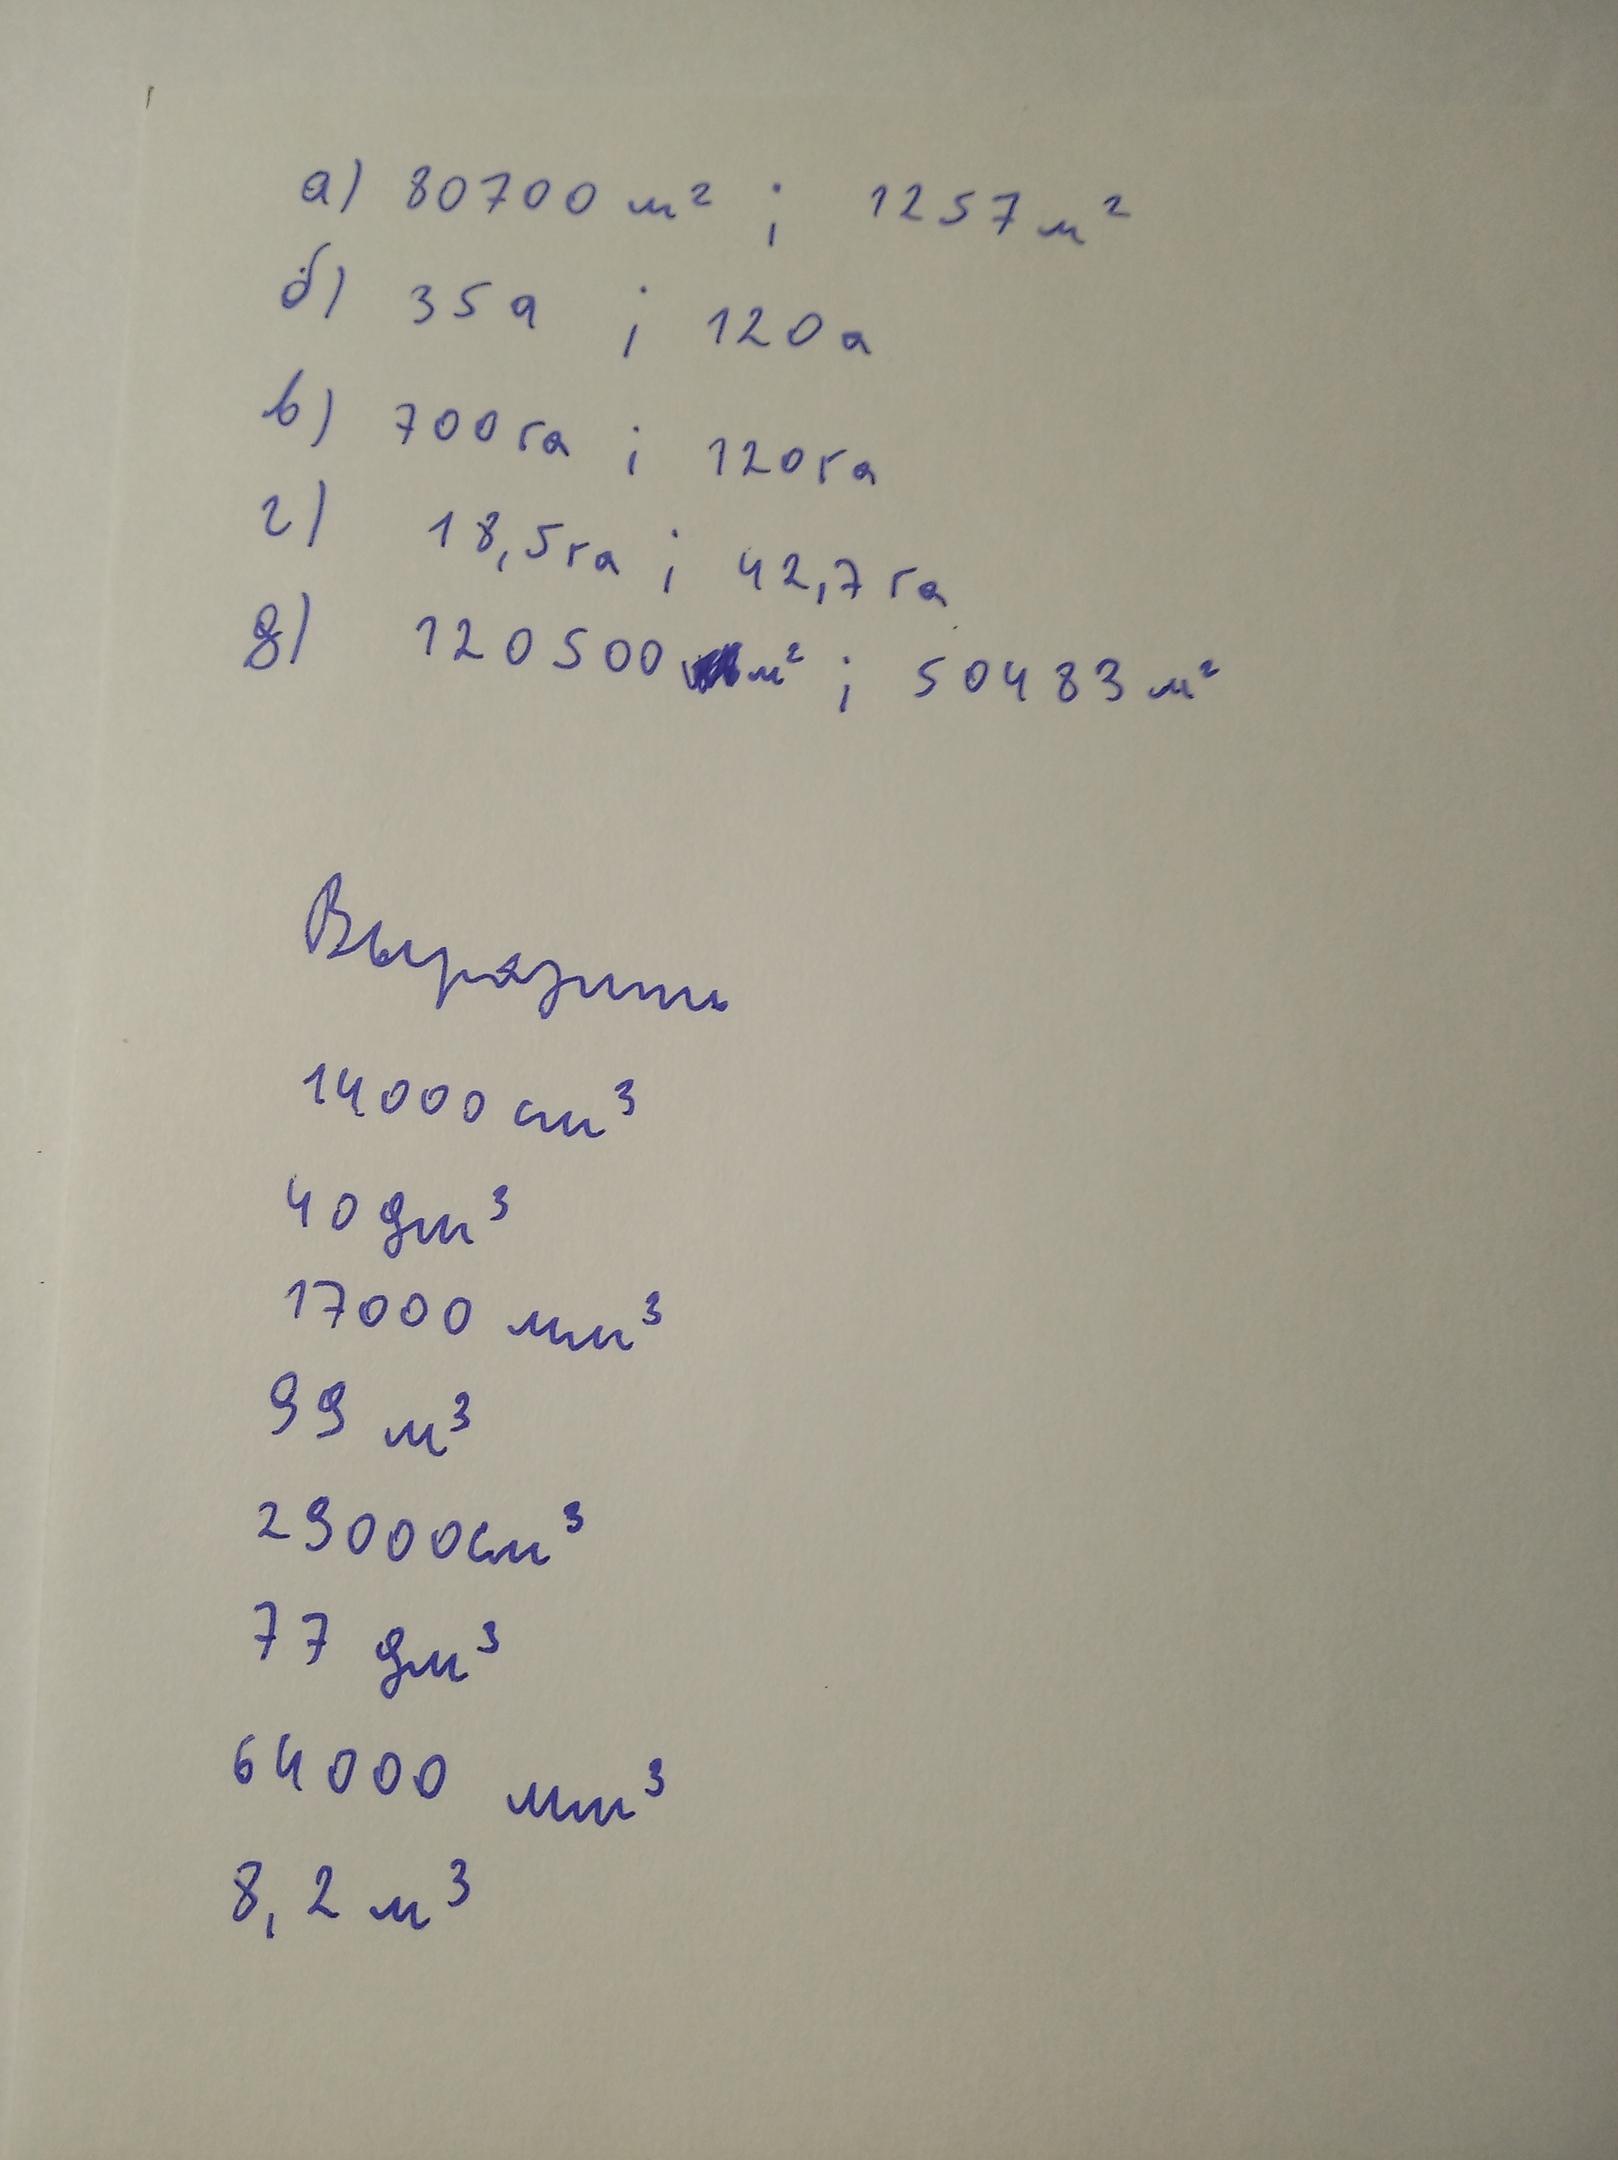 а) 80700 м² ; 1257 м²
б) 35а ; 120а
в) 700га ; 120га
г) 18,5га ; 42,7га
д) 120500 м² ; 50483 м²
Выразить
14000 см³
40 дм³
17000 мм³
99 м³
29000см³
77 дм³
64000 мм³
8,2 м³